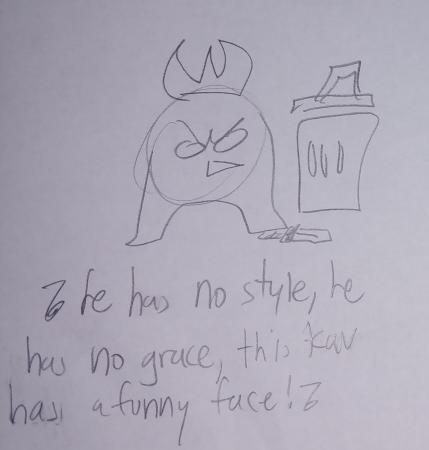 he has no style, he
has no grace, this kav
has a funny face!